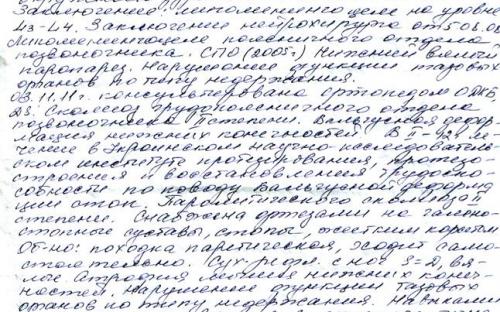 Заключение: Липоменингоцеле на уровне
43-44. Заключение нейрохирурга от 5.08.08
Липоменингоцеле поясничного отдела
позвоночника. СПО (2005г) Нижний вялый
парапарез. Нарушение функции тазовых
органов по типу недержания.
03.11.11г. консультирована ортопедом ОДКБ
ДЗ: Сколиоз грудопоясничного отдела
позвоночника II степени. Вальгусная дефор-
мация нижних конечностей. В II-
чение в Украинском научно-исследователь-
ском институте протезирования, протезо-
строения и восстановления трудоспо-
собности по поводу вальгусной деформа
ции стоп. Паралитического сколиоза II
степени. Снабжена ортезами на голено-
стопные суставы, стопы, жестким корсетом
Об-но: походка паретическая, ходит само-
стоятельно. Сух. рефл. с ног S=D, вя-
лые. Атрофия мышц нижних конеч-
ностей. Нарушение функции тазовых
органов по типу недержания. Навыками